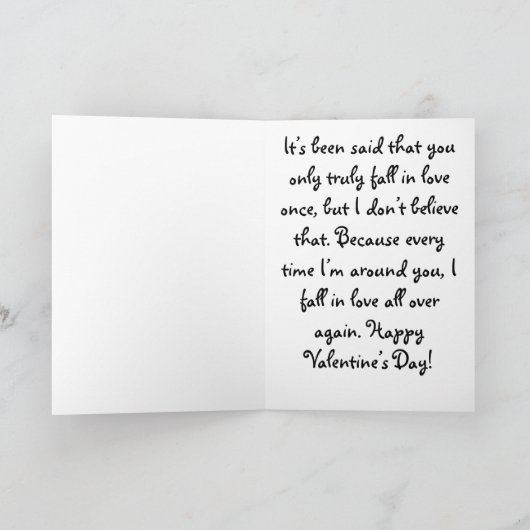 It's been said that you
only truly fall in love
once, but I don't believe
that. Because every
time I'm around you, I
fall in love all over
again. Happy
Valentine's Day!